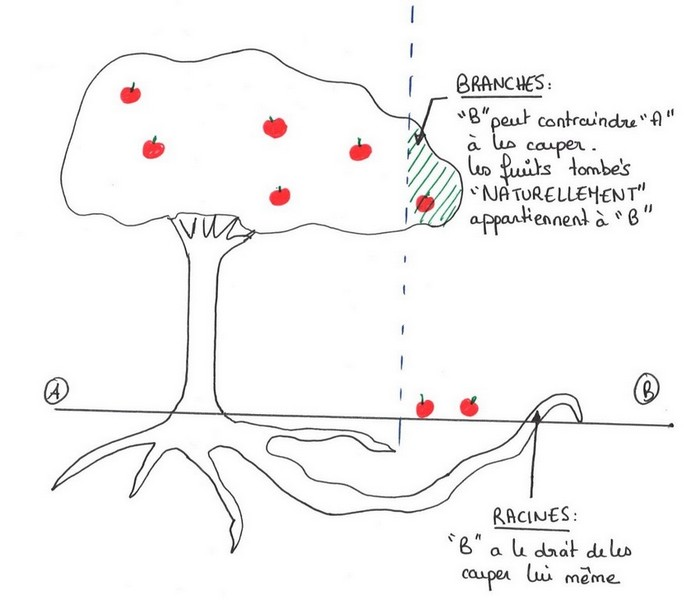 BRANCHES:
"B" peut contraindre "A"
à les couper.
les fruits tombés
"NATURELLEMENT"
appartiennent à "B"
A
B
RACINES:
"B" a le droit de les
couper lui même